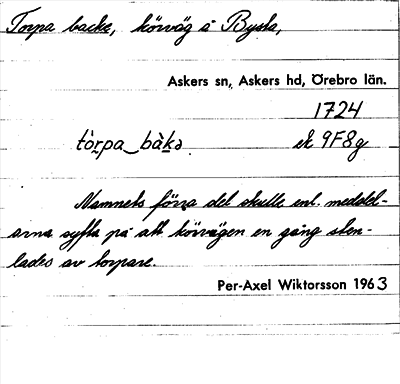 Torpa backe, körväg å Bysta,
Askers sn, Askers hd, Örebro län.
1724
tòrpa‿bàka ek 9F8g
Namnets förra del skulle enl. meddel-
arna syfta på att körvägen en gång sten-
lades av torpare.
Per-Axel Wiktorsson 1963